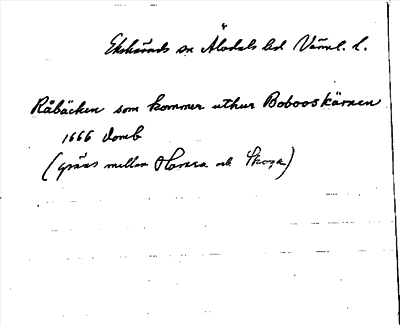 Ekshärads sn Älvdals hd Värml. l.
Råbäcken som kommer uthur Bobooskärnen
1666 Domb
(gräns mellan Hamra och Skoga)